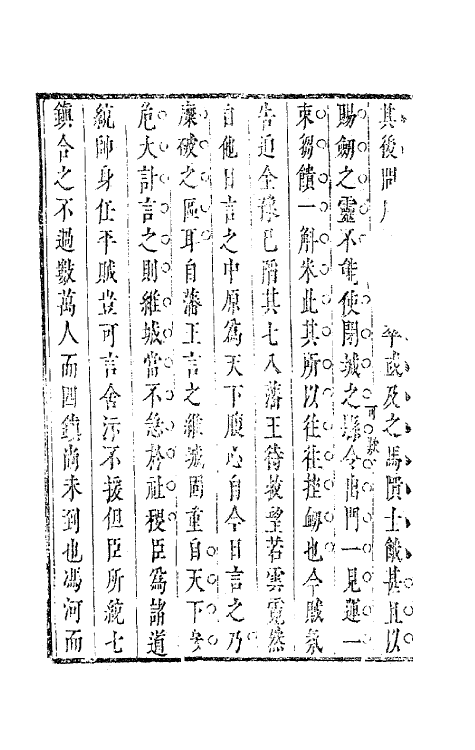 其後問
卒或及之馬價士餓甚且以
賜劍之靈不能使閉城之縣令啟門一見運一
可歎
束芻饋一斛米此其所以往往控劒也今賊氛
告迫全豫已陷其七八藩王待救望若雲霓然
自他日言之中原為天下腹心自今日言之乃
糜破之區耳自藩王言之維城固重自天下
危大計言之則維城當不急於社稷臣為諸道
統帥身任平賊豈可言舍汴不援但臣所統七
鎮合之不過數萬人而四鎮尚未到也馮河而